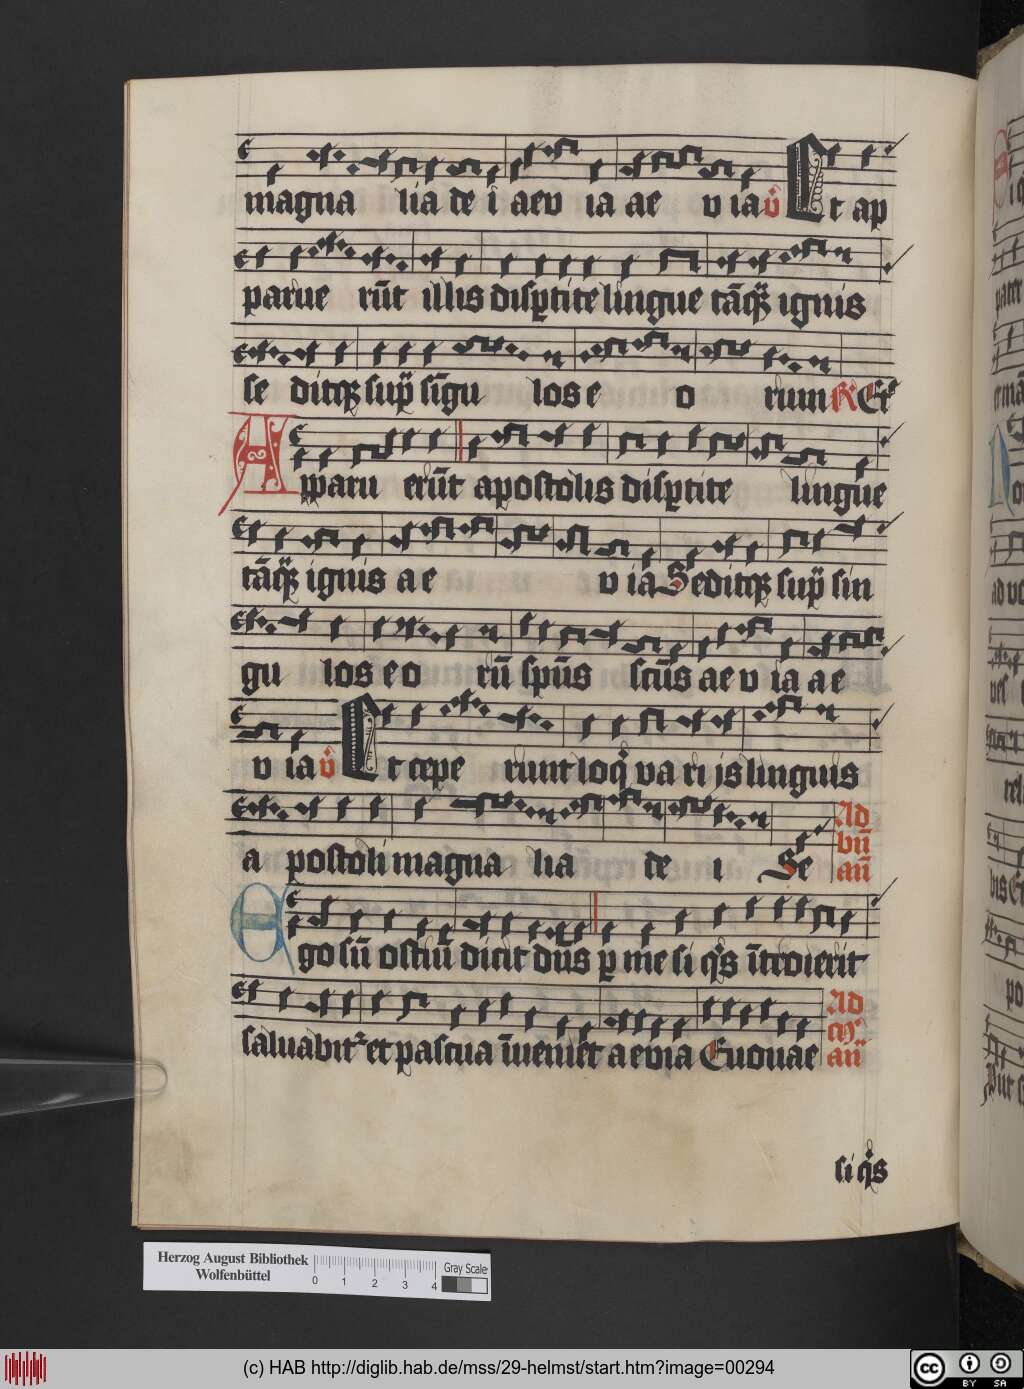 magna lia de i aev ia ae v ia v̊ Et ap
parue rūt illis disꝑtite lingue tāqꝫ ignis
se ditqꝫ supꝫ sīgu los e o rum R Et
Apparu erūt apostolis disꝑtite lingue
tāqꝫ ignis a e v ia Seditqꝫ supꝫ sin
gu los e o rū spūs scūs ae v ia a e
v ia v̊ Et cepe runt loqͥ va ri js linguis
a postoli magna lia de i Se Ad
bn̄
an̄
Ego sū ostiū dicit dūs ꝑ me si qͥs ītroierit
saluabit᷑ et pascua īueniet aevia Euouae Ad
an̄
si qͥs
Herzog August Bibliothek
Wolfenbüttel
0 1 2 3 4
Gray Scale
(c) HAB http://diglib.hab.de/mss/29-helmst/start.htm?image=00294
cc BY SA